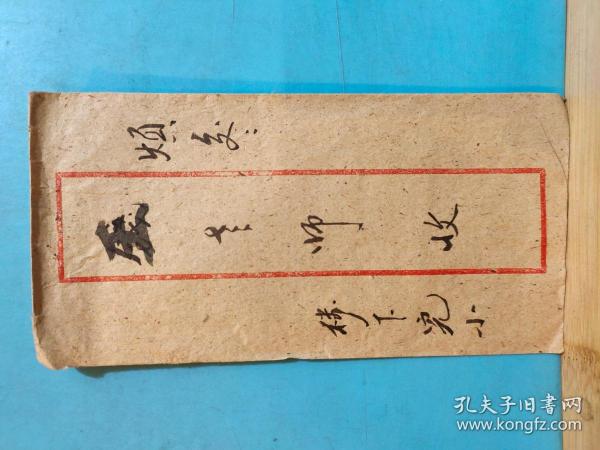 烦交:
老师 收
楼下完小
孔夫子旧书网
www.kongfz.com